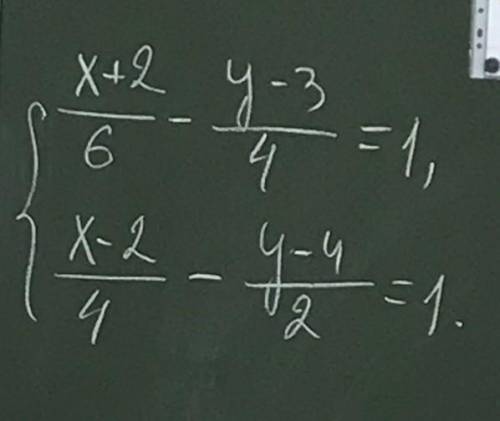 (x+2)/6 - (y-3)/4 = 1,
(x-2)/4 - (y-4)/2 = 1.